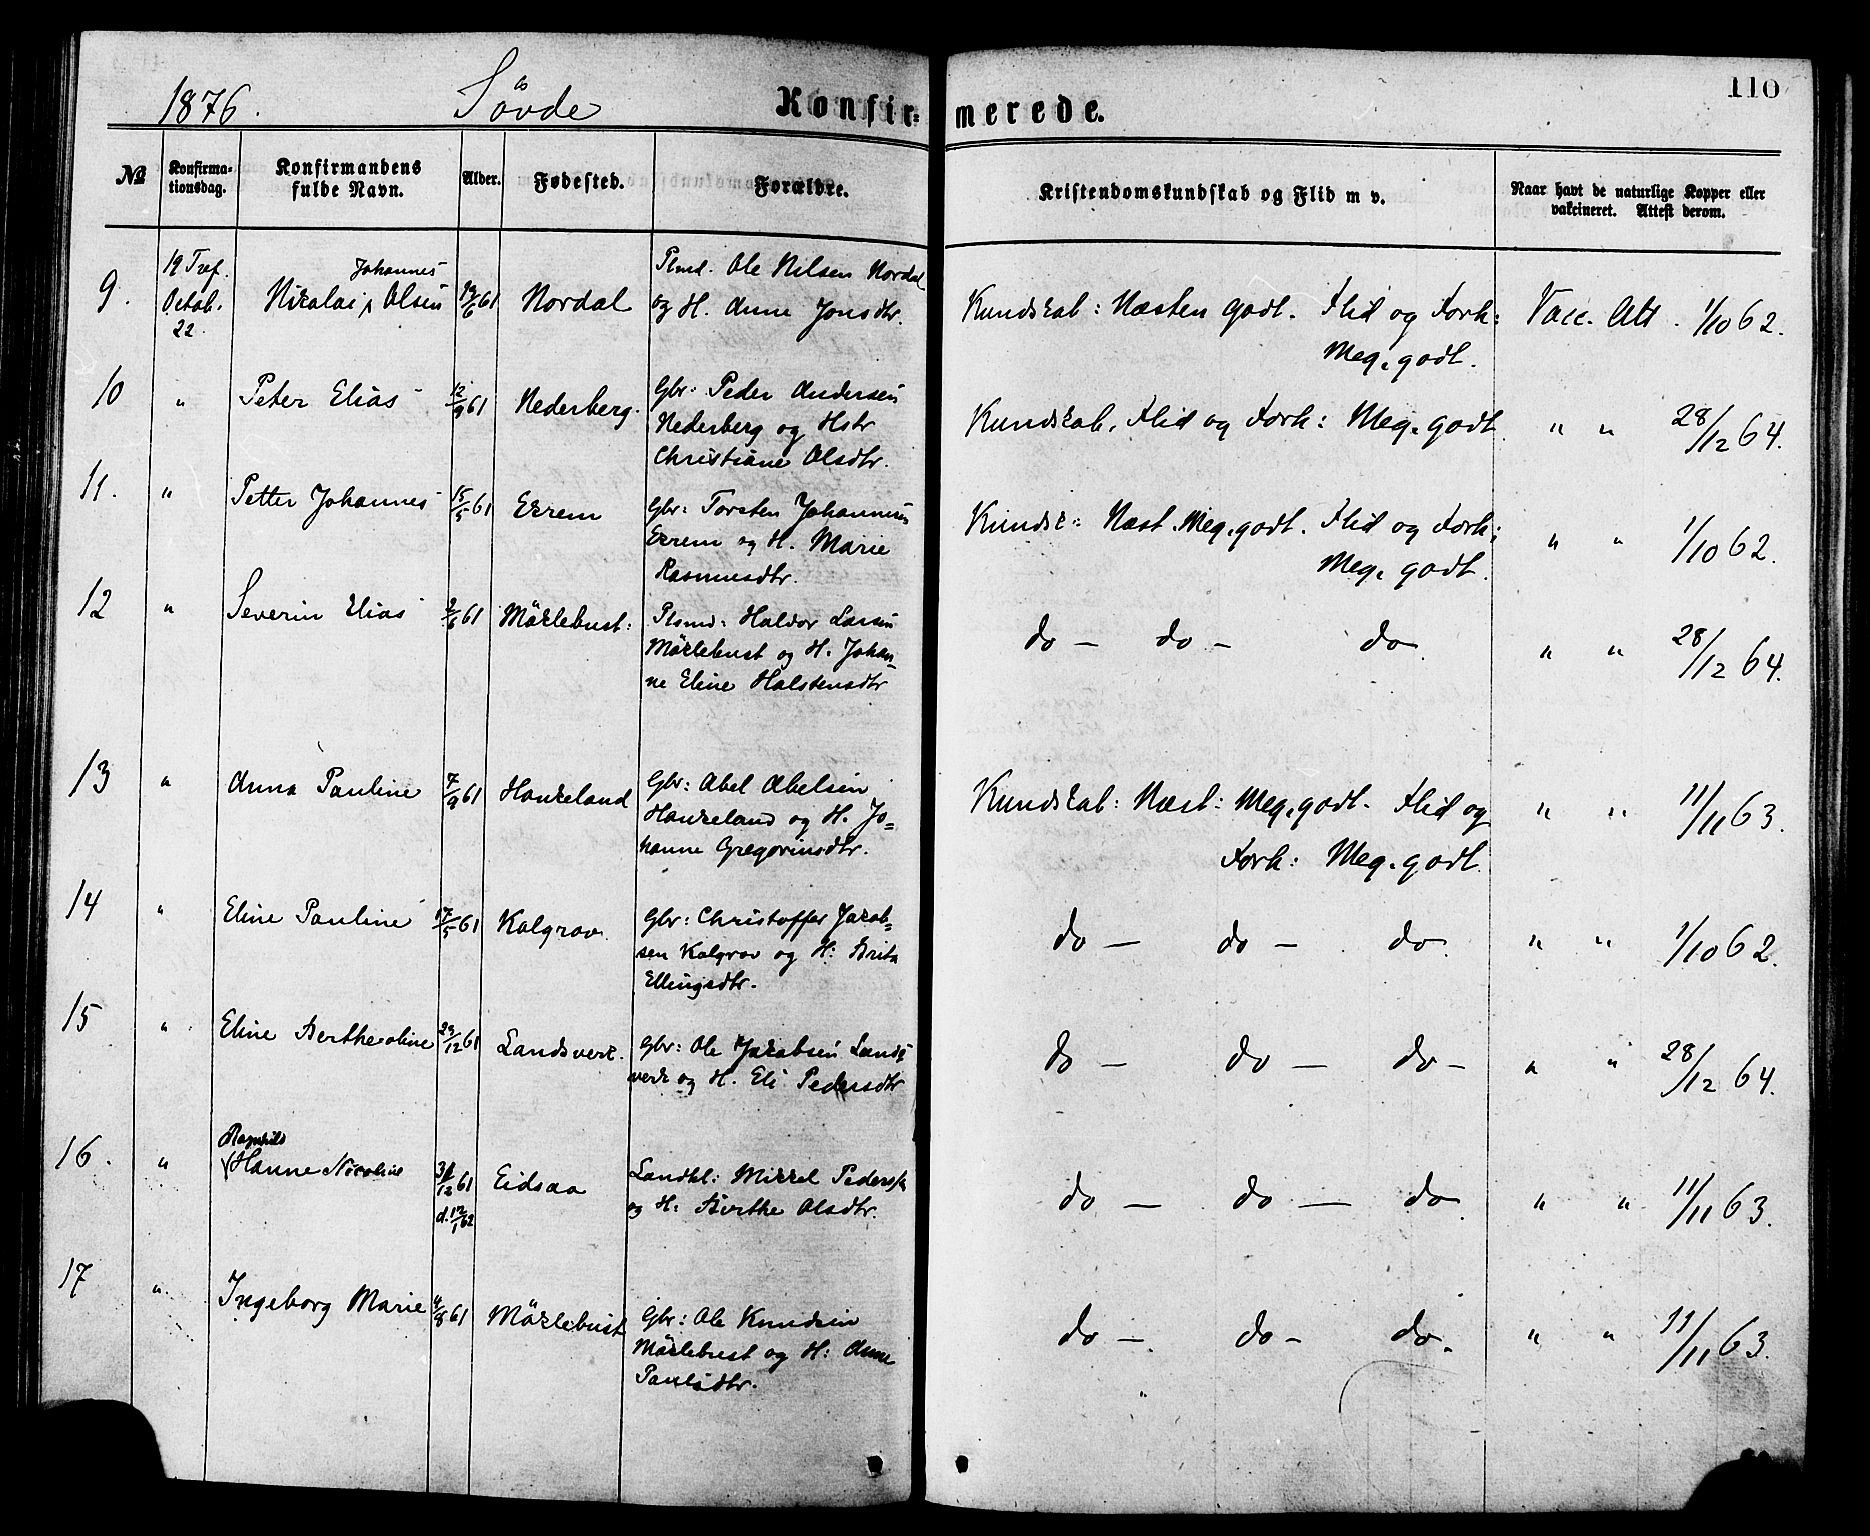 1876. Sövde Konfir= merede. 110
№ Konfirma-tionsdag. Konfirmandens fulde Navn. Alder. Fødested. Forældre. Kristendomskundskab og Flid m v. Naar havt de naturlige Kopper eller vakcineret. Attest derom.
9. 19 Tref. Johannes Plmd. Ole Nilsen Nordal
Octob. 22. Nikolai Olsen /6 61 Nordal og H. Anne Jonsdtr. Kundskab: Næsten godt. Flid og Forh: Vacc. Att. 1/10 62.
Meg. godt.
10 " Peter Elias 12/9 61 Nederberg. Gbr: Peder Andersen
Nederberg og Hstr Kundskab, Flid og Forh: Meg. godt. " " 28/12 64.
Christiane Olsdtr.
11. " Petter Johannes 15/5 61 Ekrem Gbr: Torsten Johannesen Kundsk: Næst. Meg. godt. Flid og Forh:
Ekrem og H. Marie Meg. godt. " " 1/10 62.
Rasmusdtr.
12 " Severin Elias 2/6 61 Möklebust: Plsmd: Haldor Larsen do – do – do. " " 28/12 64.
Möklebust og H. Johan-
ne Eline Halstensdtr
13 " Anna Pauline 7/9 61 Haukeland Gbr: Abel Abelsen Kundskab: Næst: Meg. godt. Flid og " " 11/11 63.
Haukeland og H. Jo=
hanne Gregoriusdtr. Forh: Meg. godt.
14 " Eline Pauline 17/5 61 Kalgrav. Gbr: Christoffer Jakob= do – do – do. " " 1/10 62.
sen Kalgrav og H: Brita
Ellingsdtr.
15 " Eline Bertheoline 29/12 61 Landsverk. Gbr: Ole Jakobsen Lands do – do – do – " " 28/12 64.
verk og H. Eli Pedersdtr
16. " Ragnhild
Hanne Nicoline 31/12 61 Eidsaa Landhl: Mikkel Peders. do – do – do. " " 11/11 63.
d. 12/1 62 og H: Berthe Olsdtr.
17 " Ingeborg Marie 4/8 61 Möklebust Gbr: Ole Knudsen do – do – do. " " 11/11 63.
Möklebust og H: Anne
Paulsdtr.